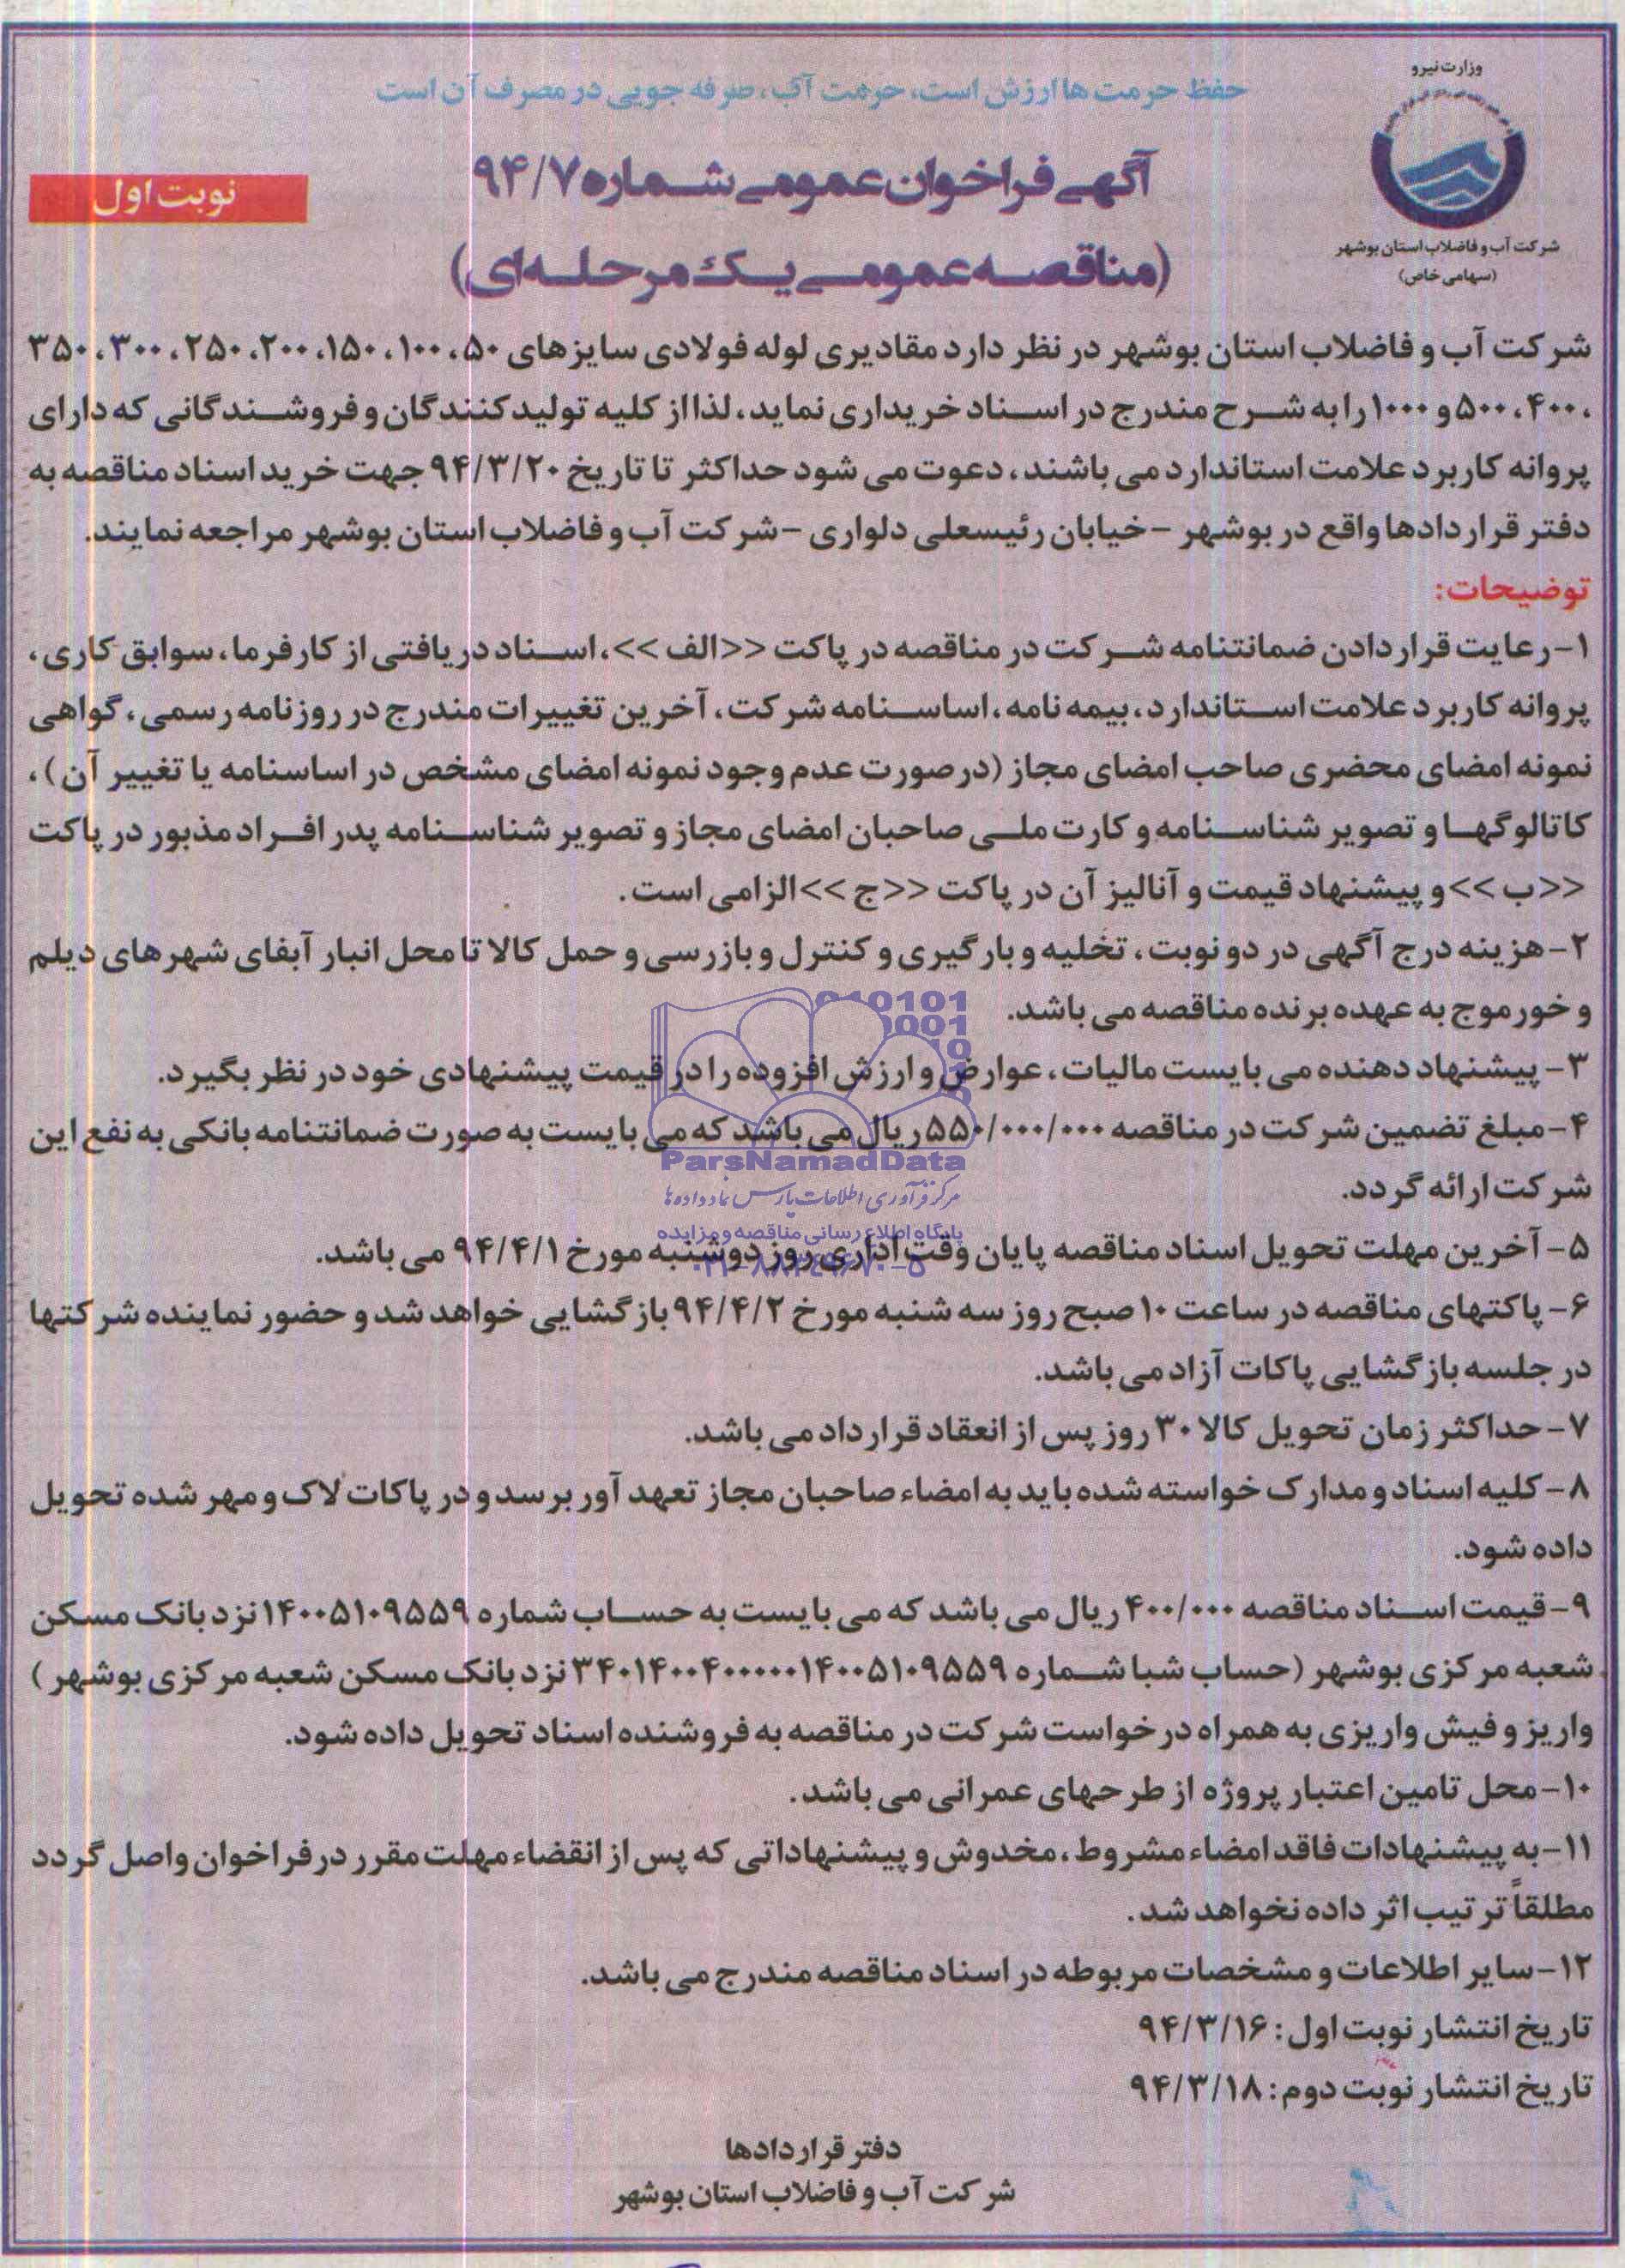 وزارت نیرو
شرکت آب و فاضلاب استان بوشهر
(سهامی خاص)
حفظ حرمت ها ارزش است، حرمت آب، صرفه جویی در مصرف آن است
آگهی فراخوان عمومی شماره ۹۴/۷
نوبت اول
(مناقصه عمومی یک مرحله ای)
شرکت آب و فاضلاب استان بوشهر در نظر دارد مقادیری لوله فولادی سایزهای ۵۰، ۱۰۰، ۱۵۰، ۲۰۰، ۲۵۰، ۳۰۰، ۳۵۰
، ۴۰۰، ۵۰۰ و ۱۰۰۰ را به شرح مندرج در اسناد خریداری نماید، لذا از کلیه تولید کنندگان و فروشندگانی که دارای
پروانه کاربرد علامت استاندارد می باشند، دعوت می شود حداکثر تا تاریخ ۹۴/۳/۲۰ جهت خرید اسناد مناقصه به
دفتر قراردادها واقع در بوشهر - خیابان رئیسعلی دلواری - شرکت آب و فاضلاب استان بوشهر مراجعه نمایند.
توضیحات:
۱- رعایت قرار دادن ضمانتنامه شرکت در مناقصه در پاکت <<الف>>، اسناد دریافتی از کارفرما، سوابق کاری،
پروانه کاربرد علامت استاندارد، بیمه نامه، اساسنامه شرکت، آخرین تغییرات مندرج در روزنامه رسمی، گواهی
نمونه امضای محضری صاحب امضای مجاز (در صورت عدم وجود نمونه امضای مشخص در اساسنامه یا تغییر آن)،
کاتالوگها و تصویر شناسنامه و کارت ملی صاحبان امضای مجاز و تصویر شناسنامه پدر افراد مذبور در پاکت
<<ب>> و پیشنهاد قیمت و آنالیز آن در پاکت <<ج>> الزامی است.
۲- هزینه درج آگهی در دو نوبت، تخلیه و بارگیری و کنترل و بازرسی و حمل کالا تا محل انبار آبفای شهرهای دیلم
و خورموج به عهده برنده مناقصه می باشد.
۳- پیشنهاد دهنده می بایست مالیات، عوارض و ارزش افزوده را در قیمت پیشنهادی خود در نظر بگیرد.
۴- مبلغ تضمین شرکت در مناقصه ۵۵۰/۰۰۰/۰۰۰ ریال می باشد که می بایست به صورت ضمانتنامه بانکی به نفع این
ParsNamadData
شرکت ارائه گردد.
مرکز فرآوری اطلاعات پارس نماد داده ها
پایگاه اطلاع رسانی مناقصه و مزایده
۵- آخرین مهلت تحویل اسناد مناقصه پایان وقت اداری روز دوشنبه مورخ ۹۴/۴/۱ می باشد.
۰۲۱-۸۸۳۴۹۶۷۰-۵
۶- پاکتهای مناقصه در ساعت ۱۰ صبح روز سه شنبه مورخ ۹۴/۴/۲ بازگشایی خواهد شد و حضور نماینده شرکتها
در جلسه بازگشایی پاکات آزاد می باشد.
۷- حداکثر زمان تحویل کالا ۳۰ روز پس از انعقاد قرارداد می باشد.
۸- کلیه اسناد و مدارک خواسته شده باید به امضاء صاحبان مجاز تعهد آور برسد و در پاکات لاک و مهر شده تحویل
داده شود.
۹- قیمت اسناد مناقصه ۴۰۰/۰۰۰ ریال می باشد که می بایست به حساب شماره ۱۴۰۰۵۱۰۹۵۵۹ نزد بانک مسکن
شعبه مرکزی بوشهر (حساب شبا شماره ۳۴۰۱۴۰۰۴۰۰۰۰۰۱۴۰۰۵۱۰۹۵۵۹ نزد بانک مسکن شعبه مرکزی بوشهر)
واریز و فیش واریزی به همراه درخواست شرکت در مناقصه به فروشنده اسناد تحویل داده شود.
۱۰- محل تامین اعتبار پروژه از طرحهای عمرانی می باشد.
۱۱- به پیشنهادات فاقد امضاء مشروط، مخدوش و پیشنهاداتی که پس از انقضاء مهلت مقرر در فراخوان واصل گردد
مطلقاً ترتیب اثر داده نخواهد شد.
۱۲- سایر اطلاعات و مشخصات مربوطه در اسناد مناقصه مندرج می باشد.
تاریخ انتشار نوبت اول: ۹۴/۳/۱۶
تاریخ انتشار نوبت دوم: ۹۴/۳/۱۸
دفتر قراردادها
شرکت آب و فاضلاب استان بوشهر